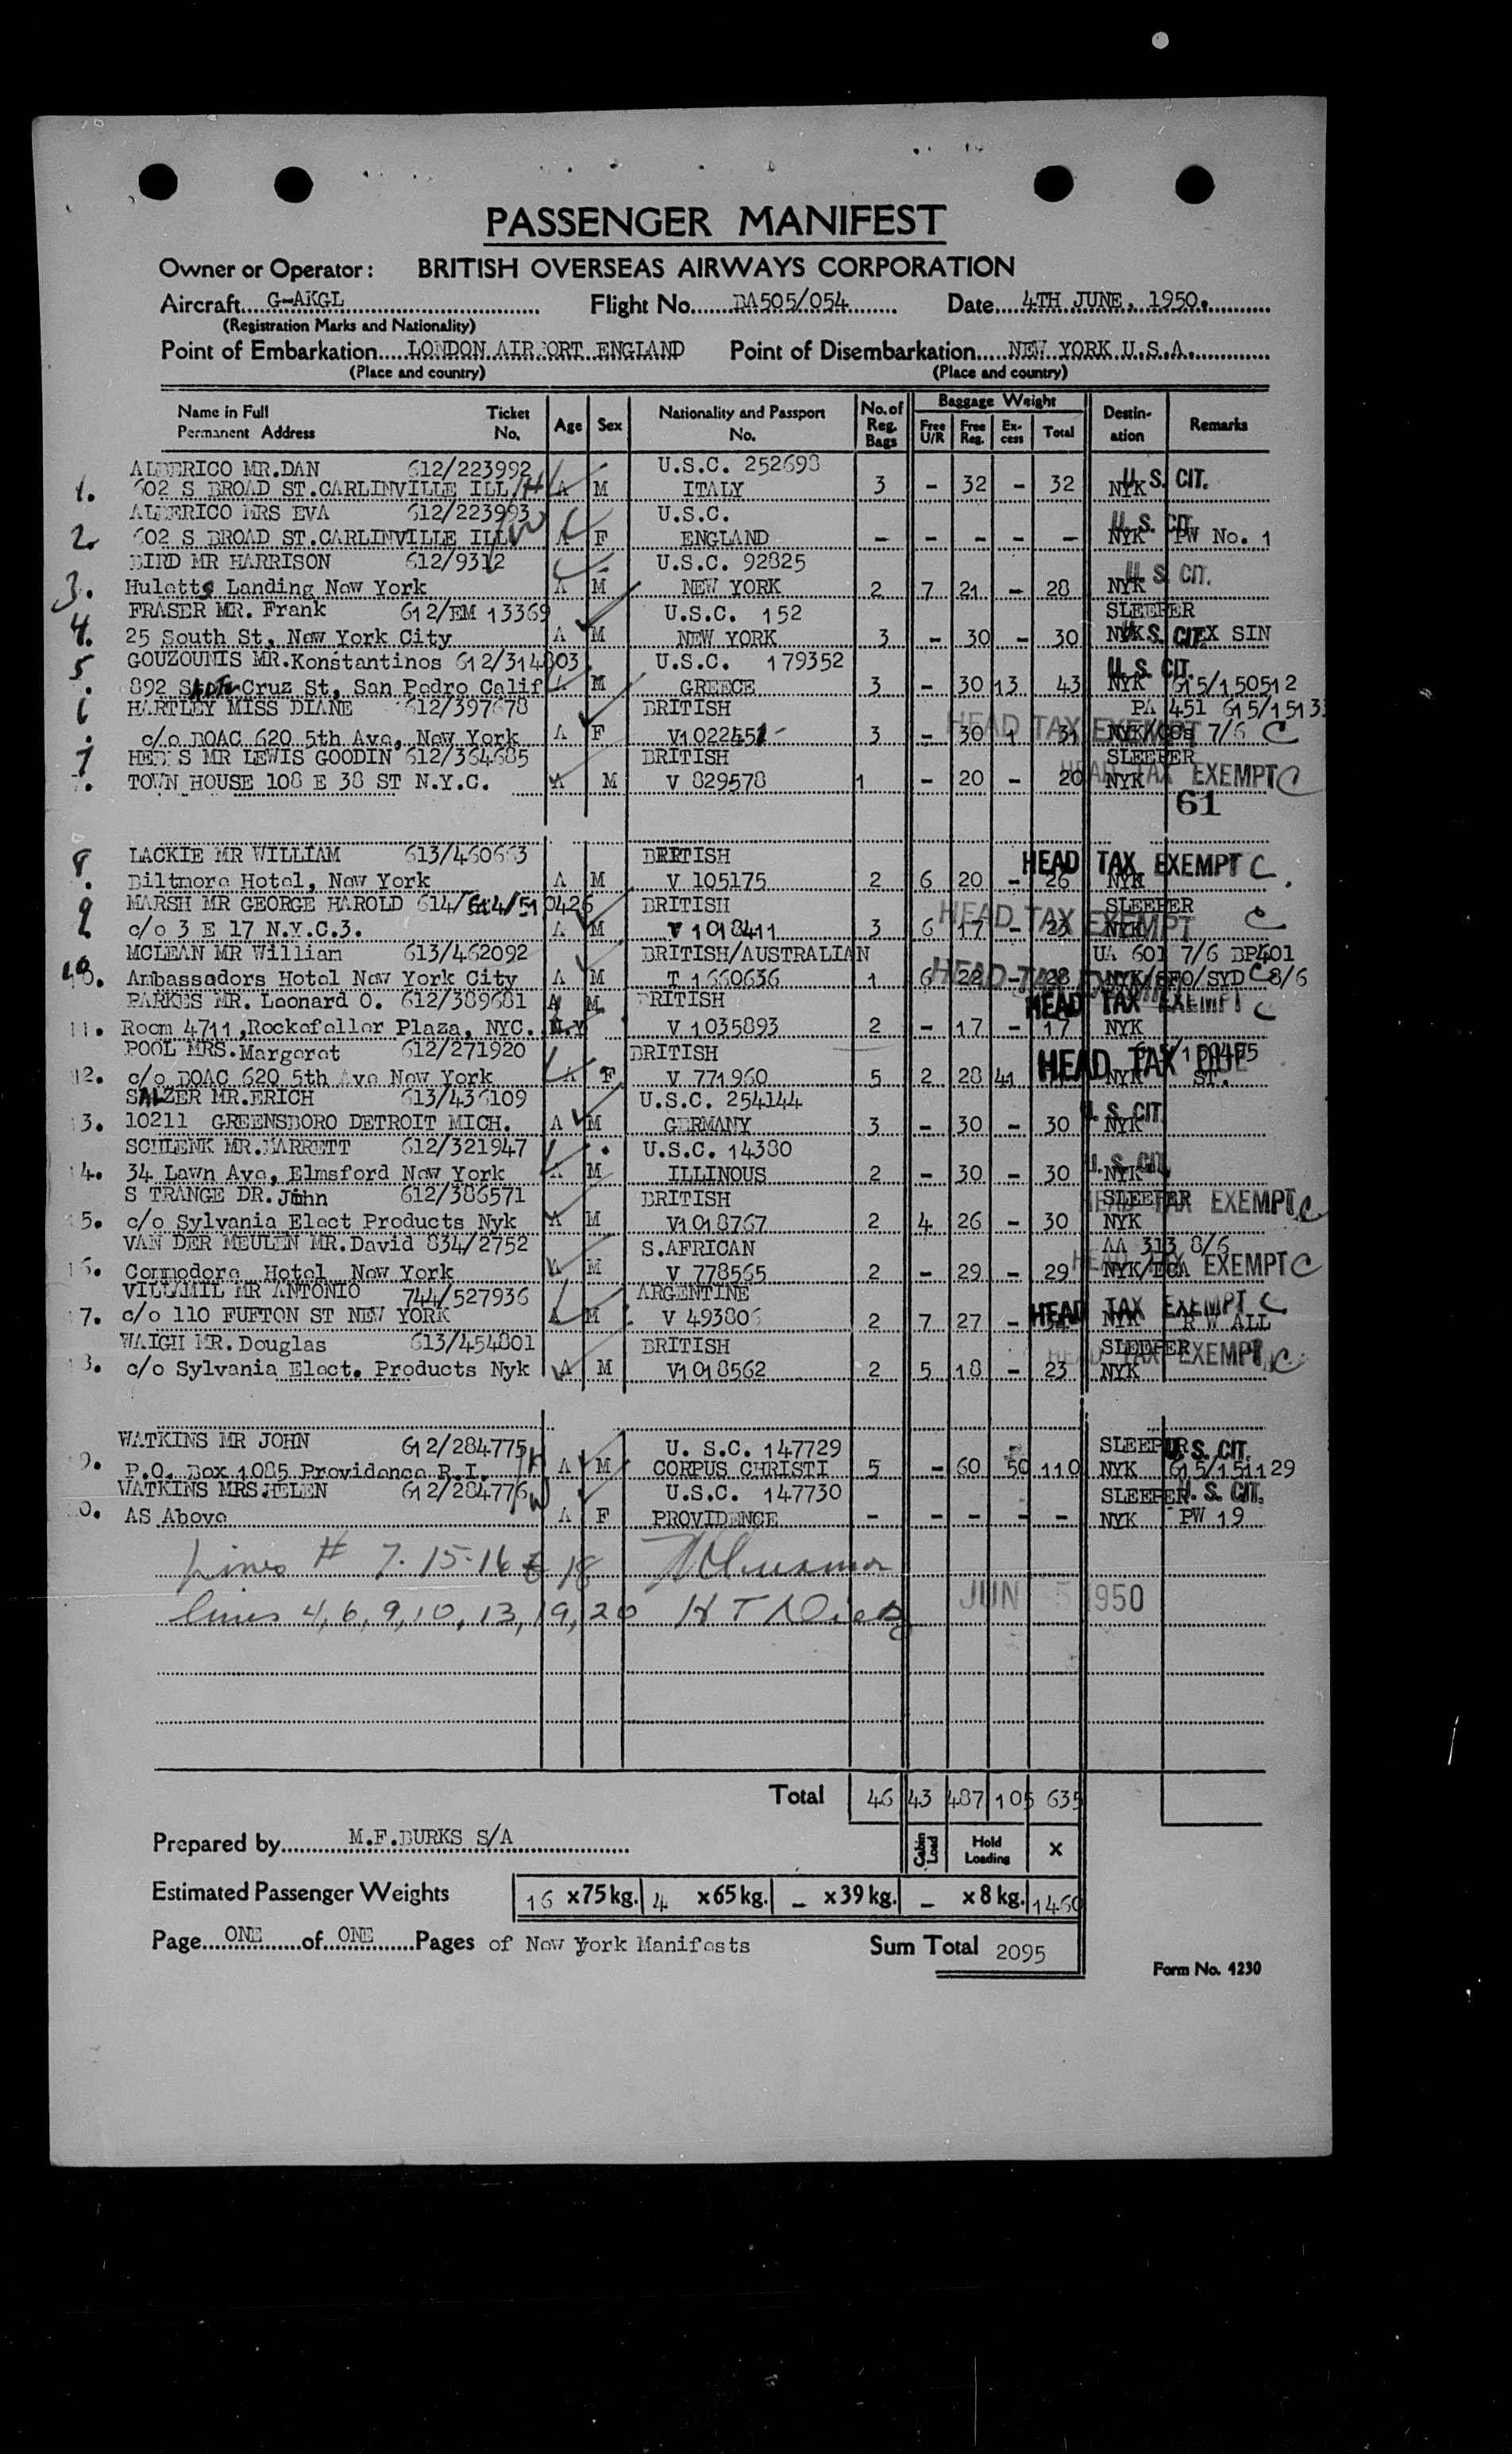 PASSENGER MANIFEST
Owner or Operator: BRITISH OVERSEAS AIRWAYS CORPORATION
Aircraft G-AKGL Flight No. BA505/054 Date 4TH JUNE, 1950.
(Registration Marks and Nationality)
Point of Embarkation LONDON AIRPORT ENGLAND Point of Disembarkation NEW YORK U.S.A.
(Place and country) (Place and country)
Name in Full Permanent Address Ticket No. Age Sex Nationality and Passport No. No. of Reg. Bags Baggage Weight Free U/R Free Reg. Ex-cess Total Destin-ation Remarks
ALDERICO MR.DAN 612/223992 U.S.C. 252698
1. 602 S BROAD ST.CARLINVILLE ILL H A M ITALY 3 - 32 - 32 NYK U.S. CIT.
ALDERICO MRS EVA 612/223993 U.S.C.
2. 602 S BROAD ST.CARLINVILLE ILL W A F ENGLAND - - - - - NYK U.S. CIT PW No. 1
BIRD MR HARRISON 612/9312 U.S.C. 92825
3. Huletts Landing New York A M NEW YORK 2 7 21 - 28 NYK U.S. CIT.
FRASER MR. Frank 612/EM 13369 U.S.C. 152 SLEEPER
4. 25 South St, New York City A M NEW YORK 3 - 30 - 30 NYK U.S. CIT. EX SIN
GOUZOUNIS MR.Konstantinos 612/314803 U.S.C. 179352 U.S. CIT.
5. 892 Cruz St, San Pedro Calif A M GREECE 3 - 30 13 43 NYK 615/150512
HARTLEY MISS DIANE 612/397678 BRITISH PA 451 615/1513
c/o BOAC 620 5th Ave, New York A F V1022451 3 - 30 1 31 NYK/COS 7/6 C HEAD TAX EXEMPT
MR LEWIS GOODIN 612/364685 BRITISH SLEEPER
7. TOWN HOUSE 108 E 38 ST N.Y.C. A M V 829578 1 - 20 - 20 NYK HEAD TAX EXEMPT C
61
8. LACKIE MR WILLIAM 613/460663 BRITISH HEAD TAX EXEMPT C
Biltmore Hotel, New York A M V 105175 2 6 20 - 26 NYK
9. MARSH MR GEORGE HAROLD 614/ BRITISH SLEEPER
c/o 3 E 17 N.Y.C.3. A M V 1018411 3 6 17 - 23 NYK HEAD TAX EXEMPT C
MCLEAN MR William 613/462092 BRITISH/AUSTRALIAN UA 601 7/6 BP401
10. Ambassadors Hotel New York City A M T 1660636 1 6 22 - 28 NYK/SFO/SYD 8/6 HEAD TAX EXEMPT C
PARKES MR. Leonard O. 612/389681 A M BRITISH HEAD TAX EXEMPT C
11. Room 4711,Rockefeller Plaza, NYC. N.Y V 1035893 2 - 17 - 17 NYK
POOL MRS.Margaret 612/271920 BRITISH
12. c/o BOAC 620 5th Ave New York A F V 771960 5 2 28 41 NYK ST. HEAD TAX DUE
SALZER MR.ERICH 613/436109 U.S.C. 254144
13. 10211 GREENSBORO DETROIT MICH. A M GERMANY 3 - 30 - 30 NYK U.S. CIT.
SCHLENK MR.BARRETT 612/321947 U.S.C. 14380
14. 34 Lawn Ave, Elmsford New York A M ILLINOUS 2 - 30 - 30 NYK U.S. CIT.
S TRANGE DR. John 612/386571 BRITISH SLEEPER HEAD TAX EXEMPT C
15. c/o Sylvania Elect Products Nyk A M V1018767 2 4 26 - 30 NYK
VAN DER MEULEN MR.David 834/2752 S.AFRICAN AA 313 8/6
16. Commodore Hotel New York A M V 778565 2 - 29 - 29 NYK/DCA HEAD TAX EXEMPT C
VILLAMIL MR ANTONIO 744/527936 ARGENTINE HEAD TAX EXEMPT C
17. c/o 110 FUFTON ST NEW YORK A M V 493806 2 7 27 - 34 NYK R W ALL
WAIGH MR. Douglas 613/454801 BRITISH SLEEPER
18. c/o Sylvania Elect. Products Nyk A M V1018562 2 5 18 - 23 NYK HEAD TAX EXEMPT C
WATKINS MR JOHN 612/284775 U. S.C. 147729 SLEEPER U.S. CIT.
9. P.O. Box 1085 Providence R.I. H A M CORPUS CHRISTI 5 - 60 50 110 NYK 615/151129
WATKINS MRS.HELEN 612/284776 W U.S.C. 147730 SLEEPER U.S. CIT.
0. AS Above A F PROVIDENCE - - - - - NYK PW 19
Lines # 7. 15-16 & 18
JUN 5 1950
lines 4, 6, 9, 10, 13, 19, 20
Total 46 43 487 105 635
Prepared by M.F.BURKS S/A Cabin Load Hold Loading X
Estimated Passenger Weights 16 x75kg. 4 x65kg. - x39kg. - x8kg. 1460
Page ONE of ONE Pages of New York Manifests Sum Total 2095
Form No. 4230